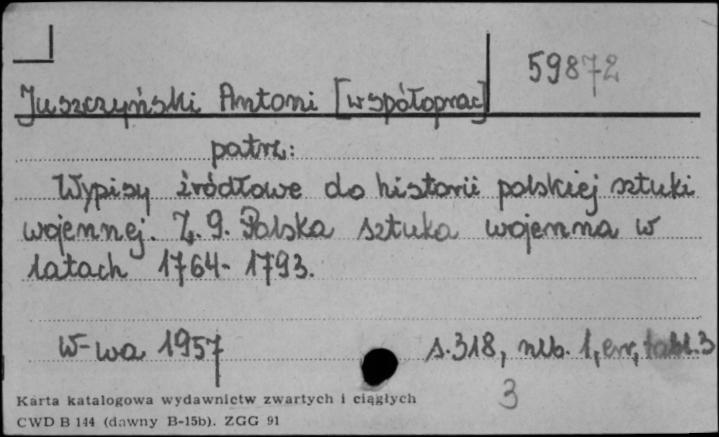 59872
Juszczyński Antoni [współoprac]
patrz:
Wypisy źródłowe do historii polskiej sztuki
wojennej. Z. 9. Polska sztuka wojenna w
latach 1764-1793.
W-wa 1957 s. 318, nlb. 1, err, tabl. 3
Karta katalogowa wydawnictw zwartych i ciągłych 3
CWD B 144 (dawny B-15b). ZGG 91